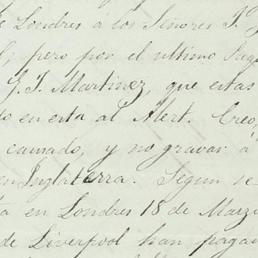 de Londres a los Señores J. J.
; pero por el ultimo
G. J. Martinez, que estas
do en esta al Alert. Creo
causado, y no gravar á
en Inglaterra. Segun se
en Londres 18 de Marzo
de Liverpool han pagan